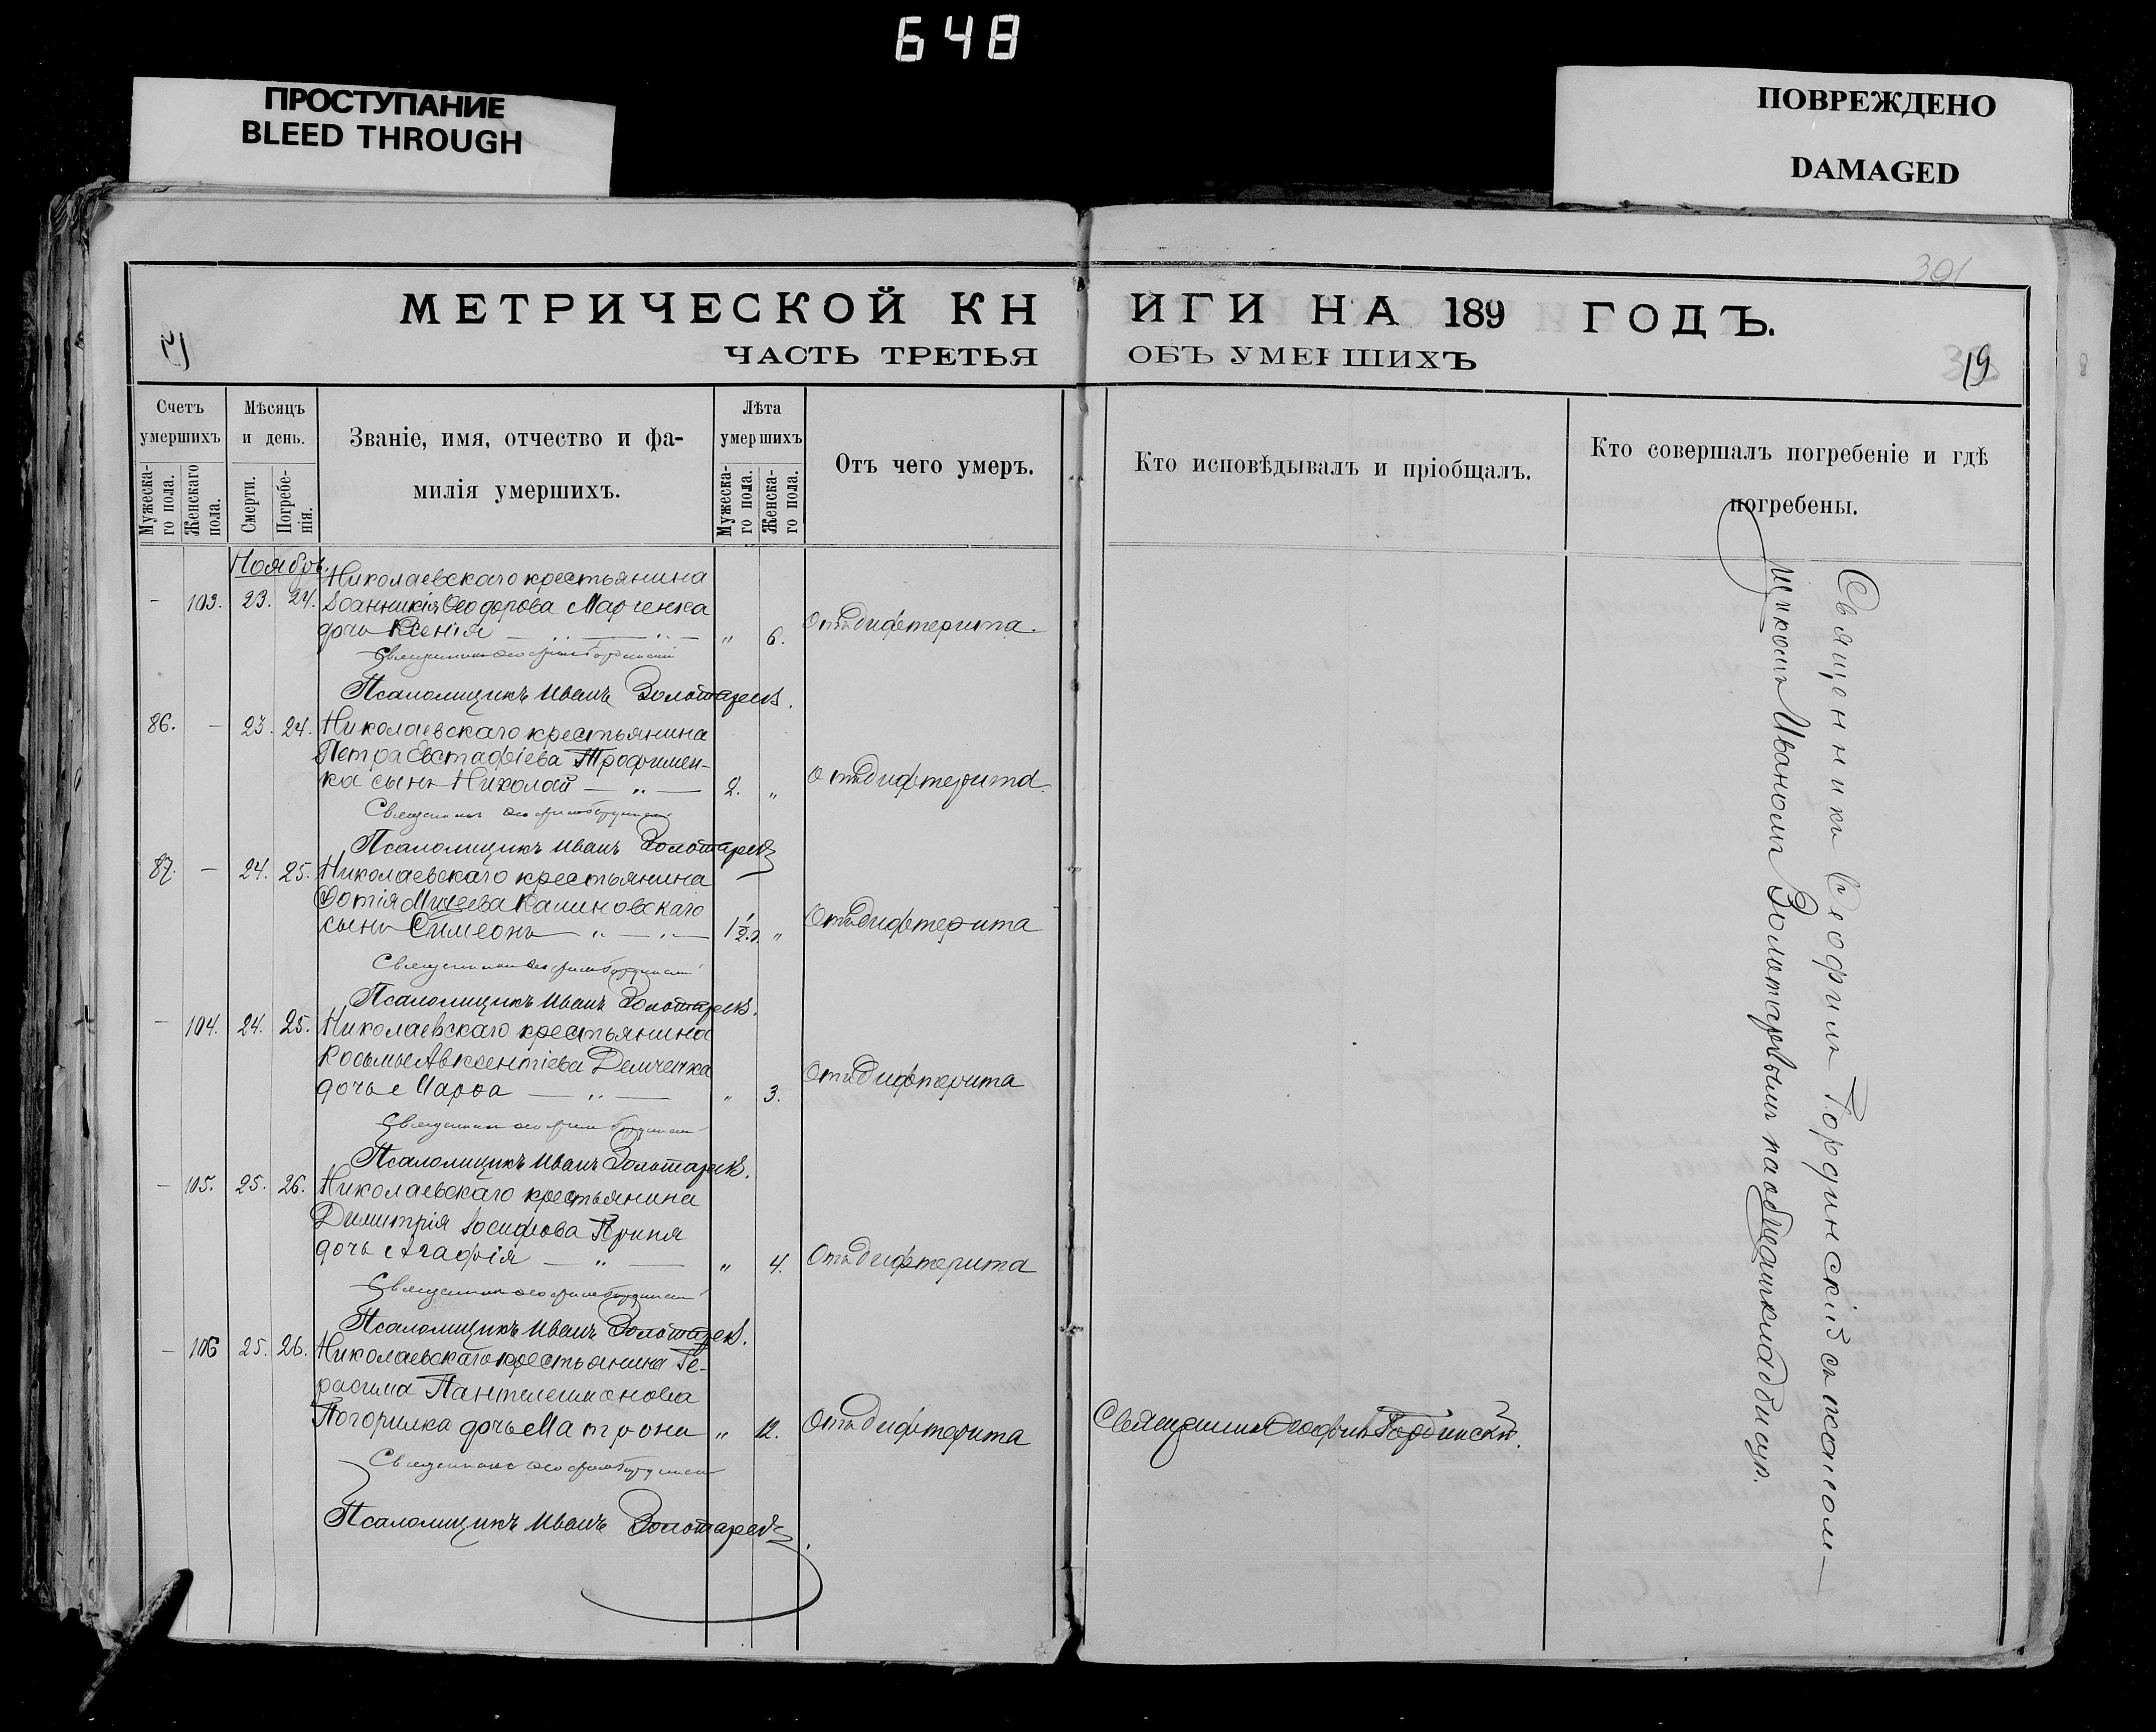 648
ПРОСТУПАНИЕ
BLEED THROUGH
ПОВРЕЖДЕНО
DAMAGED
301
МЕТРИЧЕСКОЙ КНИГИ НА 189 ГОДЪ.
ЧАСТЬ ТРЕТЬЯ ОБЪ УМЕРШИХЪ
19
Счетъ умершихъ
Мужескаго пола.
Женскаго пола.
Мѣсяцъ и день.
Смерти.
Погребенія.
Званіе, имя, отчество и фамилія умершихъ.
Лѣта умершихъ
Мужескаго пола.
Женскаго пола.
Отъ чего умеръ.
Кто исповѣдывалъ и пріобщалъ.
Кто совершалъ погребеніе и гдѣ погребены.
Ноябрь.
Николаевскаго крестьянина
– 103. 23. 24. Іоанникія Ѳеодорова Марченка
дочь Ксенія „ 6. Отъ дифтерита.
Священникъ Ѳеофилъ Гординскій
Псаломщикъ Иванъ Золотаревъ.
86. – 23. 24. Николаевскаго крестьянина
Петра Евстафіева Трофимен-
ка сынъ Николай – „ – 2. „ Отъ дифтерита.
Священникъ Ѳеофилъ Гординскій
Псаломщикъ Иванъ Золотаревъ
87. – 24. 25. Николаевскаго крестьянина
Фотія Калиновскаго
сынъ Симеонъ – „ – „ – 1½ „ Отъ дифтерита
Священникъ Ѳеофилъ Гординскій
Псаломщикъ Иванъ Золотаревъ.
– 104. 24. 25. Николаевскаго крестьянина
Косьмы Авксентіева Демченка
дочь Марѳа – „ – „ 3. Отъ дифтерита
Священникъ Ѳеофилъ Гординскій
Псаломщикъ Иванъ Золотаревъ.
– 105. 25. 26. Николаевскаго крестьянина
Димитрія Іосифова
дочь Агафія – „ – „ 4. Отъ дифтерита
Священникъ Ѳеофилъ Гординскій
Псаломщикъ Иванъ Золотаревъ.
– 106 25. 26. Николаевскаго крестьянина Ге-
расима Пантелеимонова
Погорилка дочь Матрона „ 12. Отъ дифтерита Священникъ Ѳеофилъ Гординскій.
Священникъ Ѳеофилъ Гординскій
Псаломщикъ Иванъ Золотаревъ.
Священникъ Ѳеофилъ Гординскій съ псалом–
щикомъ Иваномъ Золотаревымъ на общемъ кладбищѣ.